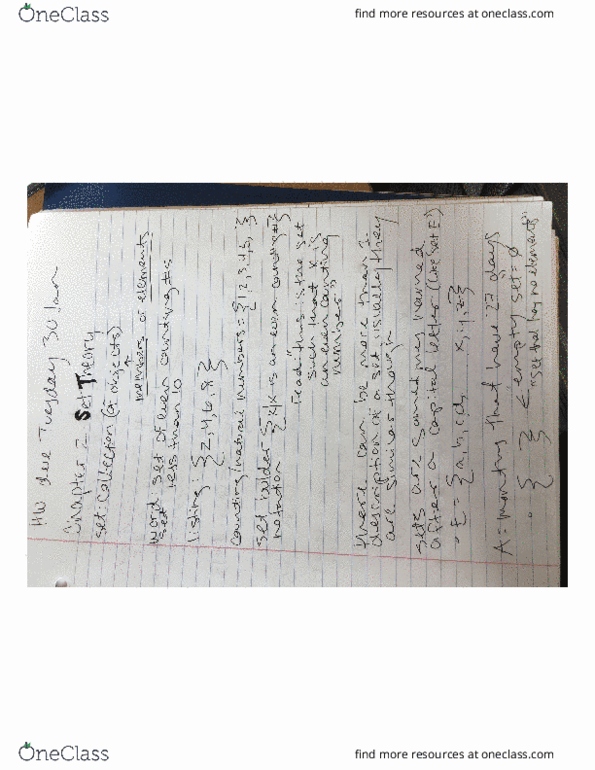 OneClass
find more resources at oneclass.com
HW due Tuesday 30
Chapter 2 Set Theory
set: collection (of objects)
members or elements
word: set of even counting #s
set less than 10
listing: {2,4,6,8}
counting/natural numbers = {1,2,3,4,5, }
set builder
notation {x|x is an even counting #}
read: this is the set
such that x is
an even counting
number"
there can be more than 1
description of a set, usually they
are similar though
sets are sometimes named
after a capital letter (like set E)
• E = {a,b,c,d... x,y,z}
A = months that have 27 days
• { } < empty set = ∅
"set that has no elements"
OneClass
find more resources at oneclass.com